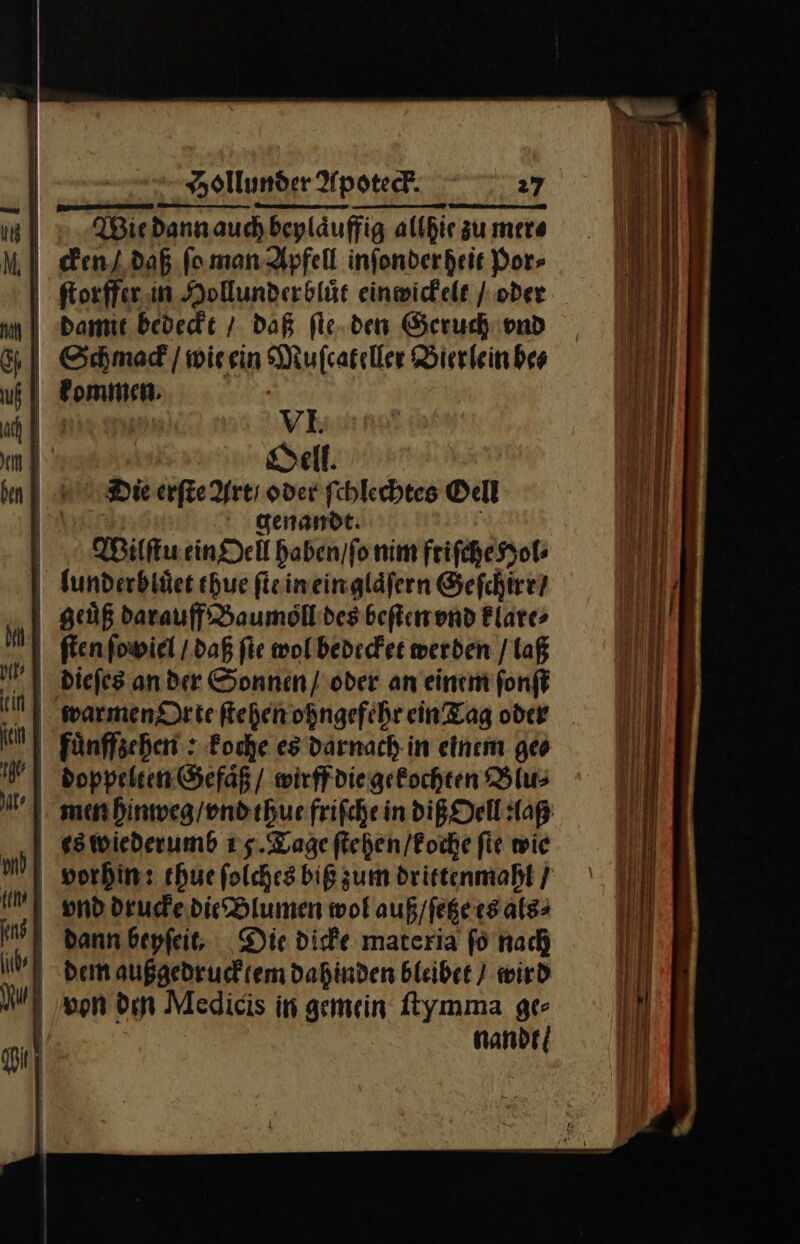 Hollunder Apoteck. 27
Wie dann auch beyläuffig allhie zu mer⸗
cken / daß ſo man Apfell inſonderheit Por⸗
ſtorffer in Hollunderblüt einwickelt / oder
damit bedeckt / daß ſie den Geruch vnd
Schmack / wie ein Muſcateller Bierlein be⸗
kommen.
VI.
Oell.
Die erſte Art / oder ſchlechtes Oell
genandt.
Wilſtu ein Oell haben / ſo nim friſche Hol⸗
lunderblüet thue ſie in ein gläſern Geſchirr /
geüß darauff Baumöll des beſten vnd klare⸗
ſten ſowiel / daß ſie wol bedecket werden / laß
dieſes an der Sonnen / oder an einem ſonſt
warmen Orte ſtehen ohngefehr ein Tag oder
fünffzehen : koche es darnach in einem ge⸗
doppelten Gefäß / wirff die gekochten Blu⸗
men hinweg / vnd thue friſche in diß Oell : laß
es wiederumb 15. Tage ſtehen / koche ſie wie
vorhin : thue ſolches biß zum drittenmahl /
vnd drucke die Blumen wol auß / ſetze es als⸗
dann beyſeit. Die dicke materia ſo nach
dem außgedrucktem dahinden bleibet / wird
von den Medicis in gemein ſtymma ge⸗
nandt /